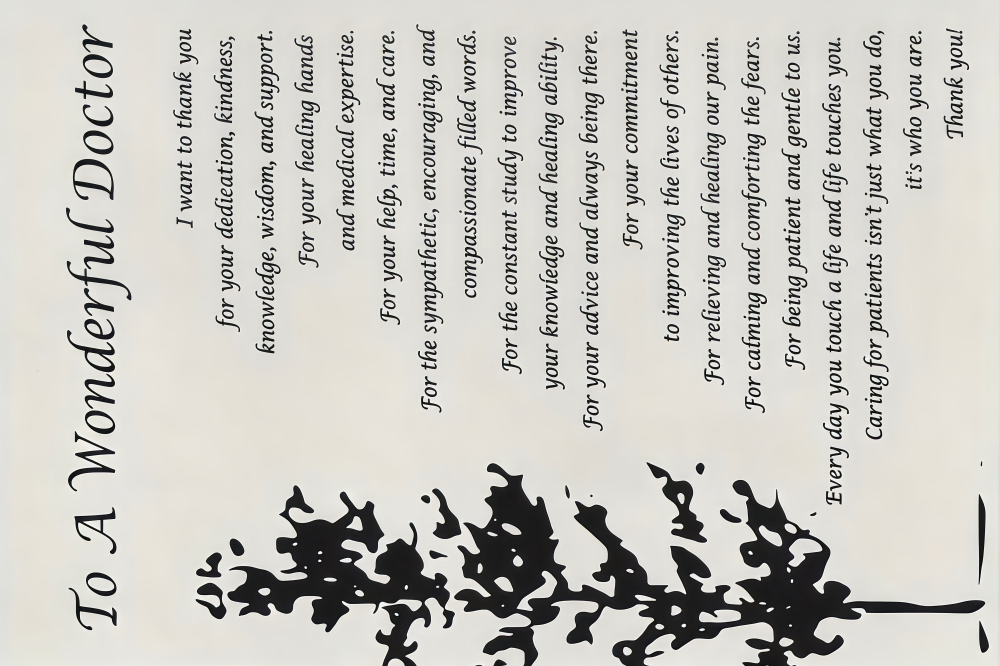 To A Wonderful Doctor
I want to thank you
for your dedication, kindness,
knowledge, wisdom, and support.
For your healing hands
and medical expertise.
For your help, time, and care.
For the sympathetic, encouraging, and
compassionate filled words.
For the constant study to improve
your knowledge and healing ability.
For your advice and always being there.
For your commitment
to improving the lives of others.
For relieving and healing our pain.
For calming and comforting the fears.
For being patient and gentle to us.
Every day you touch a life and life touches you.
Caring for patients isn't just what you do,
it's who you are.
Thank you!